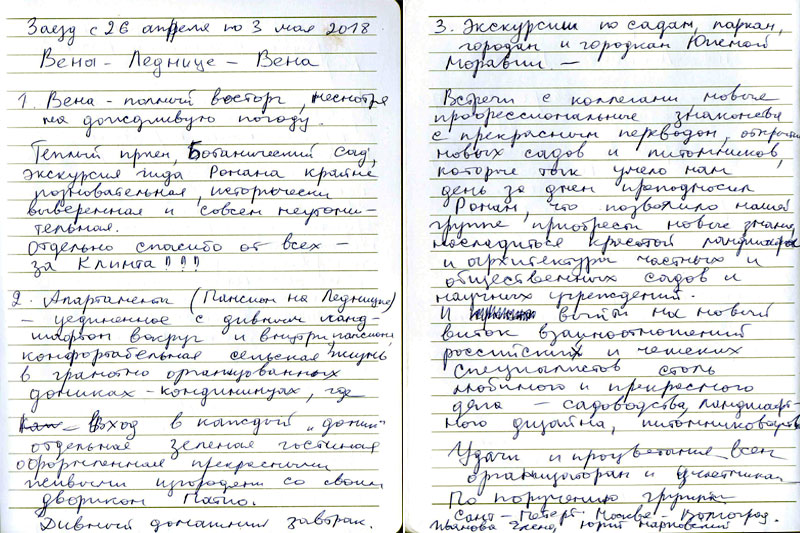 Заезд с 26 апреля по 3 мая 2018
Вена - Леднице - Вена
1. Вена - полный восторг, несмотря
на дождливую погоду.
Теплый прием, Ботанический сад,
экскурсия гида Романа крайне
познавательная, исторически
выверенная и совсем неутоми-
тельная.
Отдельно спасибо от всех -
за Климта!!!
2. Апартаменты (Пансион на Леднице)
- уединенное с дивным ланд-
шафтом вокруг и внутри пансиона,
комфортабельная сельская жизнь
в грамотно организованных
домиках - кондиминиумах, где
Вход в каждый „домик"
отдельная зеленая гостиная
оформленная прекрасными
живыми изгородями со своим
двориком Патио.
Дивный домашний завтрак.
3. Экскурсии по садам, паркам,
городам и городкам Южной
Моравии -
Встречи с коллегами новые
профессиональные знакомства
с прекрасным переводом, открытие
новых садов и питомников,
которые так умело нам
день за днем преподносил
Роман, что позволило нашей
группе приобрести новые знания,
насладиться красотой ландшафта
и архитектуры частных и
общественных садов и
научных учреждений.
И выйти на новый
виток взаимоотношений
российских и чешских
специалистов столь
любимого и прекрасного
дела - садоводства, ландшафт-
ного дизайна, питомниководства
Удачи и процветания всем
организаторам и участникам
По поручению группы
Санкт - Петерб - Москва - Волгоград.
Иванова Елена, Юрий Марковский